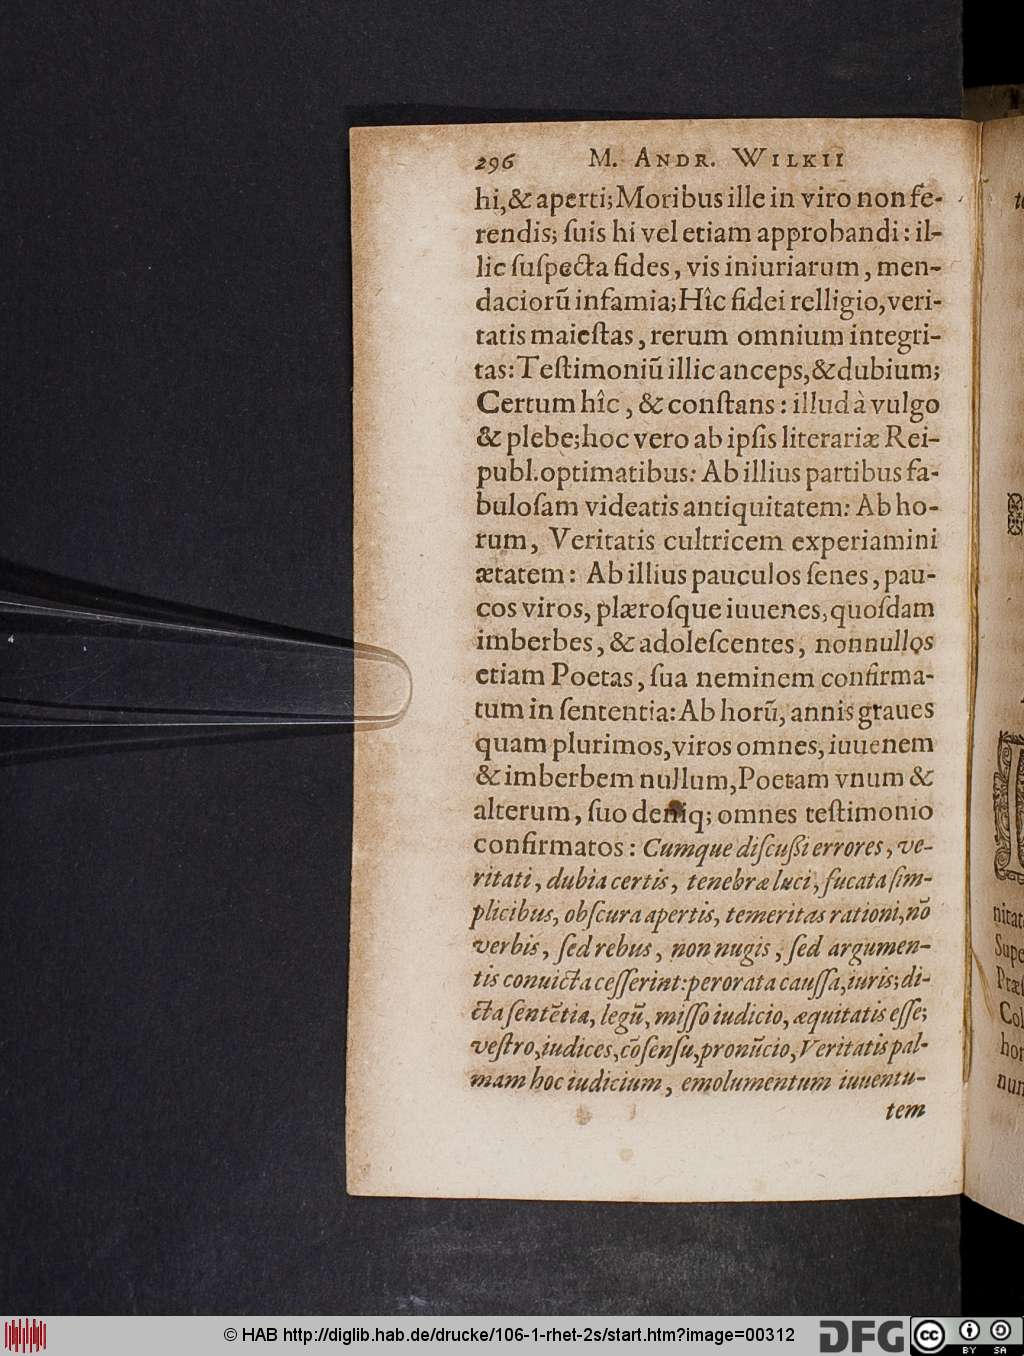 296 M. ANDR. WILKII
hi, & aperti; Moribus ille in viro non fe-
rendis; ſuis hi vel etiam approbandi: il-
lic ſuſpecta fides, vis iniuriarum, men-
daciorū infamia; Hîc fidei relligio, veri-
tatis maieſtas, rerum omnium integri-
tas: Teſtimoniū illic anceps, & dubium;
Certum hîc, & conſtans: illud à vulgo
& plebe; hoc vero ab ipſis literariæ Rei-
publ. optimatibus: Ab illius partibus fa-
buloſam videatis antiquitatem: Ab ho-
rum, Veritatis cultricem experiamini
ætatem: Ab illius pauculos ſenes, pau-
cos viros, plæroſque iuuenes, quoſdam
imberbes, & adoleſcentes, nonnullos
etiam Poetas, ſua neminem confirma-
tum in ſententia: Ab horū, annis graues
quam plurimos, viros omnes, iuuenem
& imberbem nullum, Poetam vnum &
alterum, ſuo deniq; omnes teſtimonio
confirmatos: Cumque diſcuſſi errores, ve-
ritati, dubia certis, tenebræ luci, fucata ſim-
plicibus, obſcura apertis, temeritas rationi, nō
verbis, ſed rebus, non nugis, ſed argumen-
tis conuicta ceſſerint: perorata cauſſa, iuris; di-
cta ſentētia, legū, miſſo iudicio, æquitatis eſſe;
veſtro, iudices, cōſenſu, pronūcio, Veritatis pal-
mam hoc iudicium, emolumentum iuuentu-
tem
nitat
Supe
Præſ
Col
hor
nun
© HAB http://diglib.hab.de/drucke/106-1-rhet-2s/start.htm?image=00312
DFG
cc BY SA